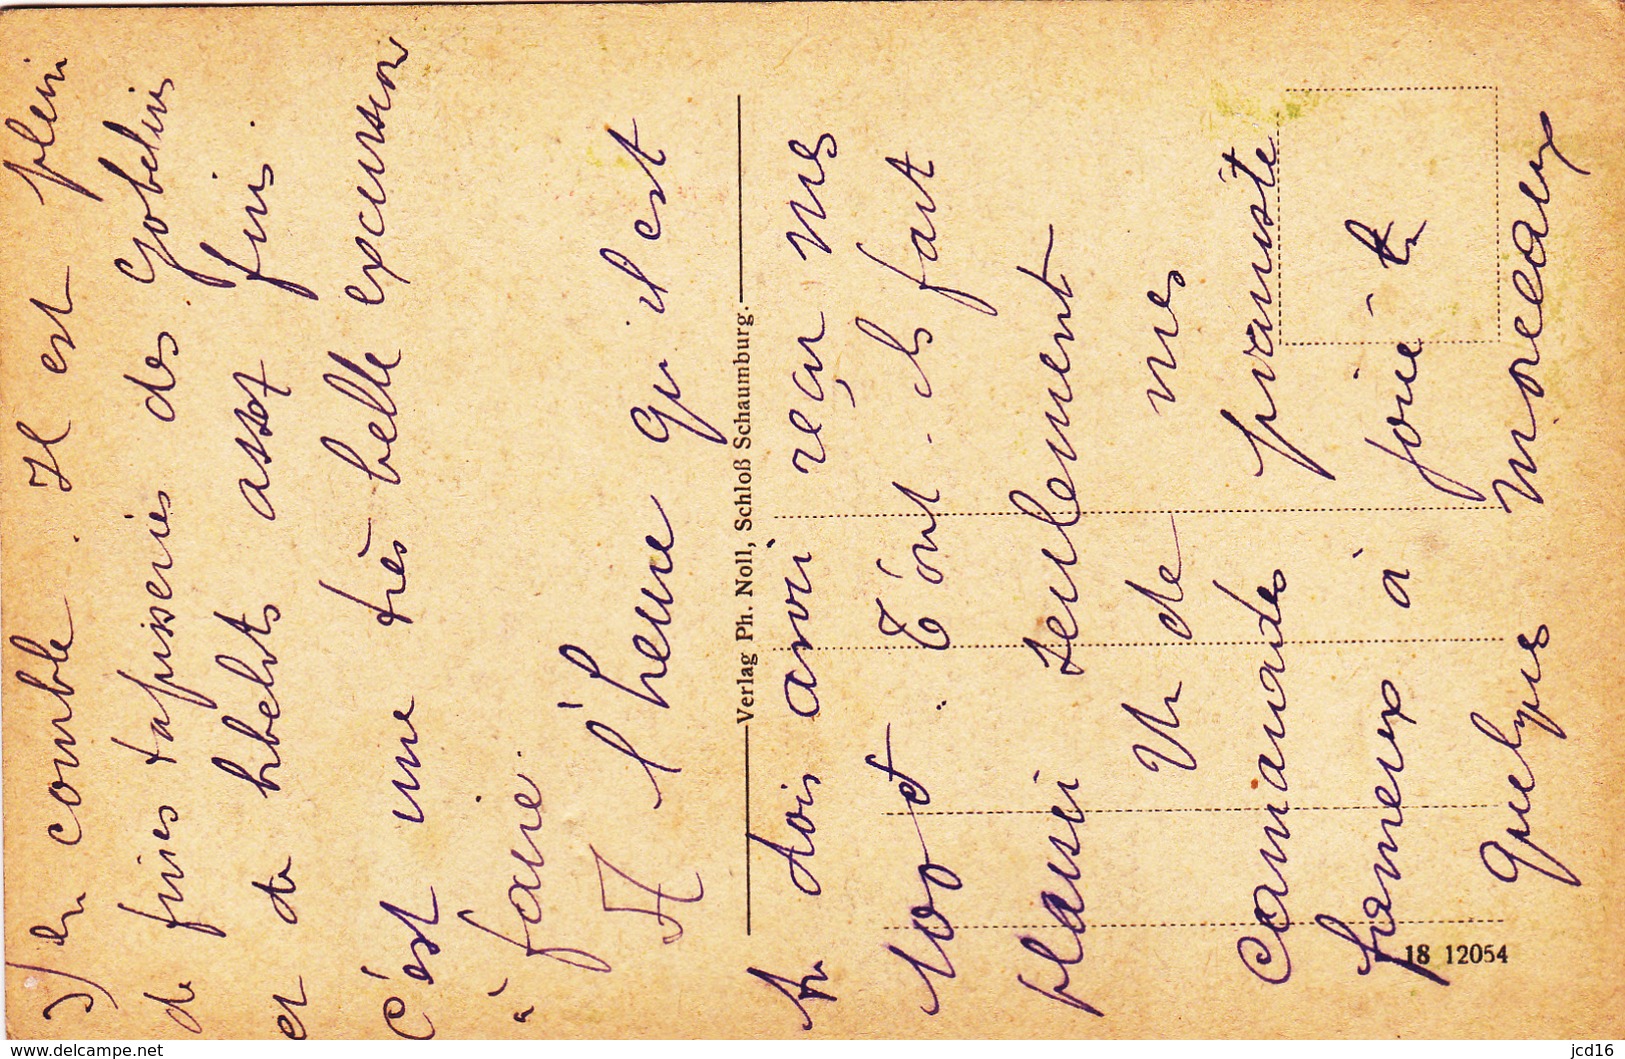 3) en comble. Il est plein
de fines tapisseries des Gobelins
et de bibelots assez fins.
C'est une très belle excursion
à faire.
A l'heure qu'il est
tu dois avoir reçu mes
100 d. T'ont-ils fait
plaisir seulement
Un de mes
camarades pianiste
fameux a joué
quelques morceaux
Verlag Ph. Noll, Schloß Schaumburg.
18 12054
www.delcampe.net
jcd16